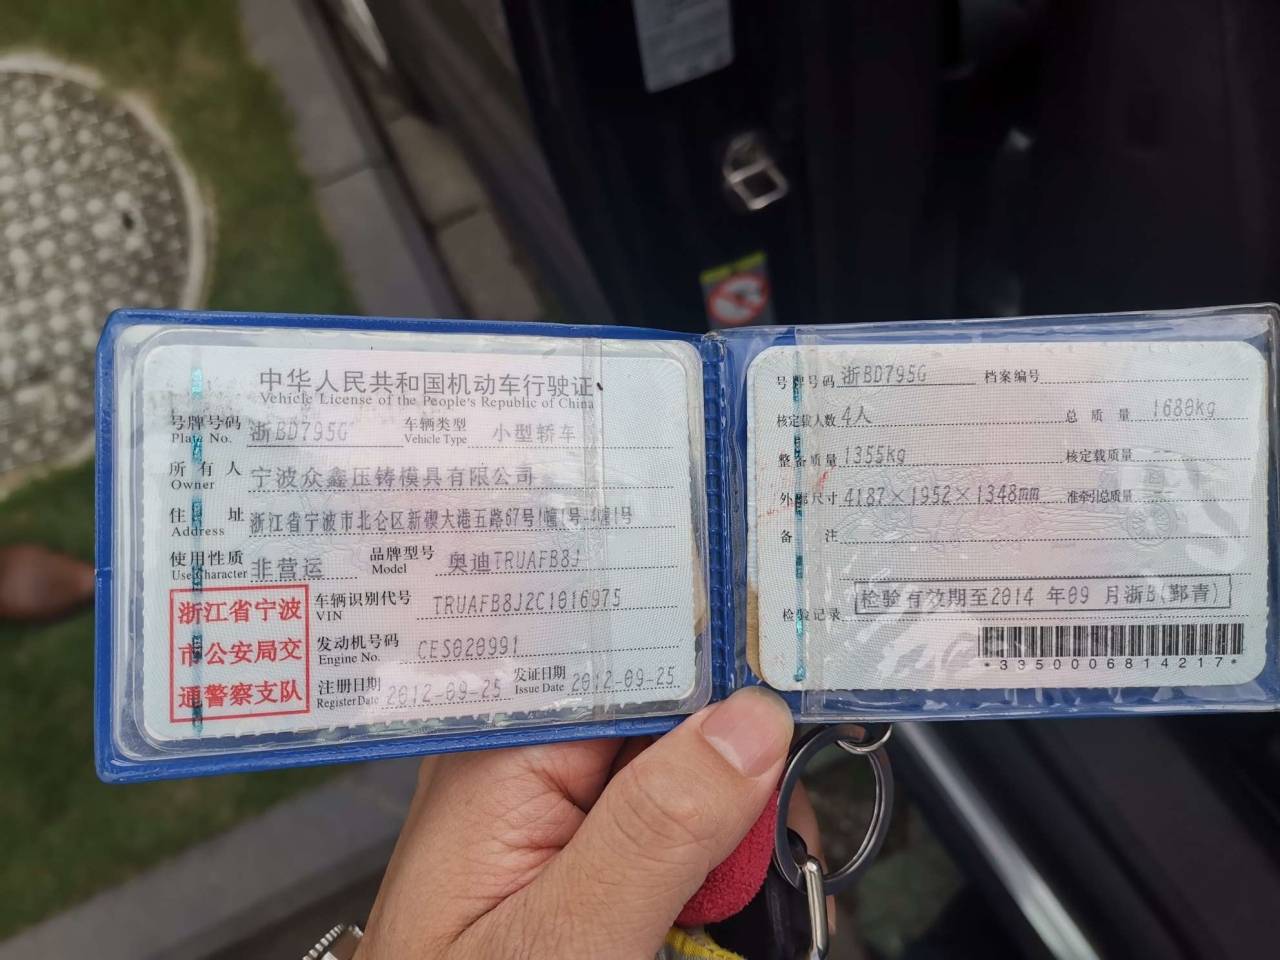 中华人民共和国机动车行驶证
Vehicle License of the People's Republic of China
号牌号码 浙BD795G 车辆类型 小型轿车
Plate No. Vehicle Type
所有人 宁波众鑫压铸模具有限公司
Owner
住址 浙江省宁波市北仑区新碶大港五路67号1幢1号-4幢1号
Address
使用性质 非营运 品牌型号 奥迪TRUAFB8J
Use Character Model
浙江省宁波
市公安局交
通警察支队
车辆识别代号 TRUAFB8J2C1016975
VIN
发动机号码 CES020991
Engine No.
注册日期 2012-09-25 发证日期 2012-09-25
Register Date Issue Date
号牌号码 浙BD795G 档案编号
核定载人数 4人 总质量 1680kg
整备质量 1355kg 核定载质量
外廓尺寸 4187×1952×1348mm 准牵引总质量
备注
检验记录 检验有效期至2014年09月浙B(鄞青)
*3350006814217*